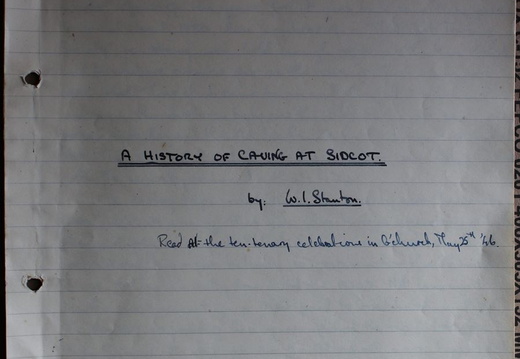 A HISTORY OF CAVING AT SIDCOT.
by: W.I. Stanton.
Read at the ten-tenary celebrations in B'church, May 25th '46.